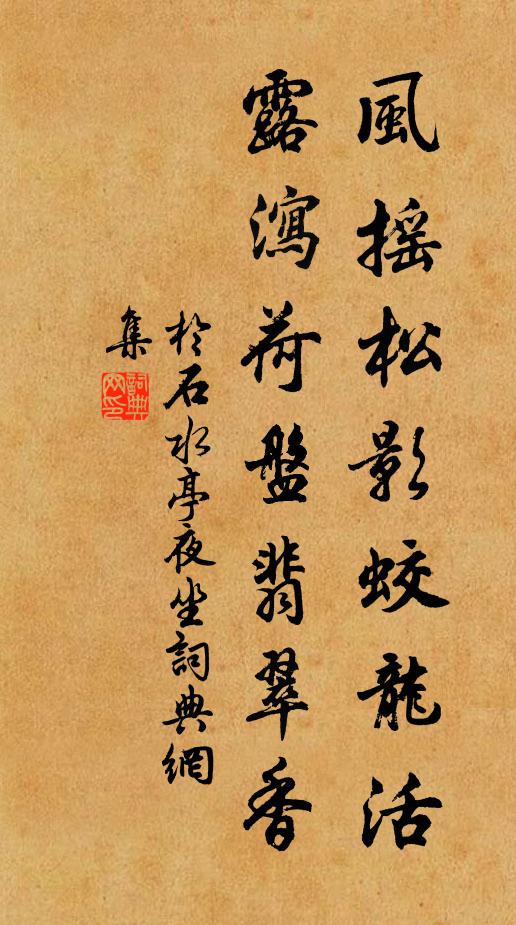 風摇松影蛟龍活
露瀉荷盤翡翠香
於石水亭夜坐詞典網
集
詞典网印